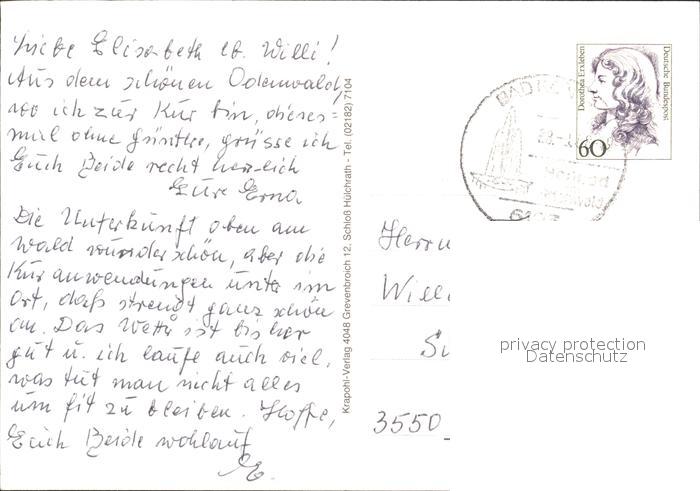 Liebe Elisabeth lb. Willi!
Aus dem schönen Odenwald,
wo ich zur Kur bin, dieses=
mal ohne Günther, grüsse ich
Euch Beide recht herzlich
Eure Erna
Die Unterkunft oben am
Wald wunderschön, aber die
Kuranwendungen unten im
Ort, daß strengt ganz schön
an. Das Wetter ist bisher
gut u. ich laufe auch viel,
was tut man nicht alles
um fit zu bleiben. Hoffe,
Euch Beide wohlauf
E.
Krapohl-Verlag 4048 Grevenbroich 12, Schloß Hülchrath - Tel. (02182) 7104
Dorothea Erxleben
Deutsche Bundespost
60
BAD
Herrn
Willi
3550
privacy protection
Datenschutz